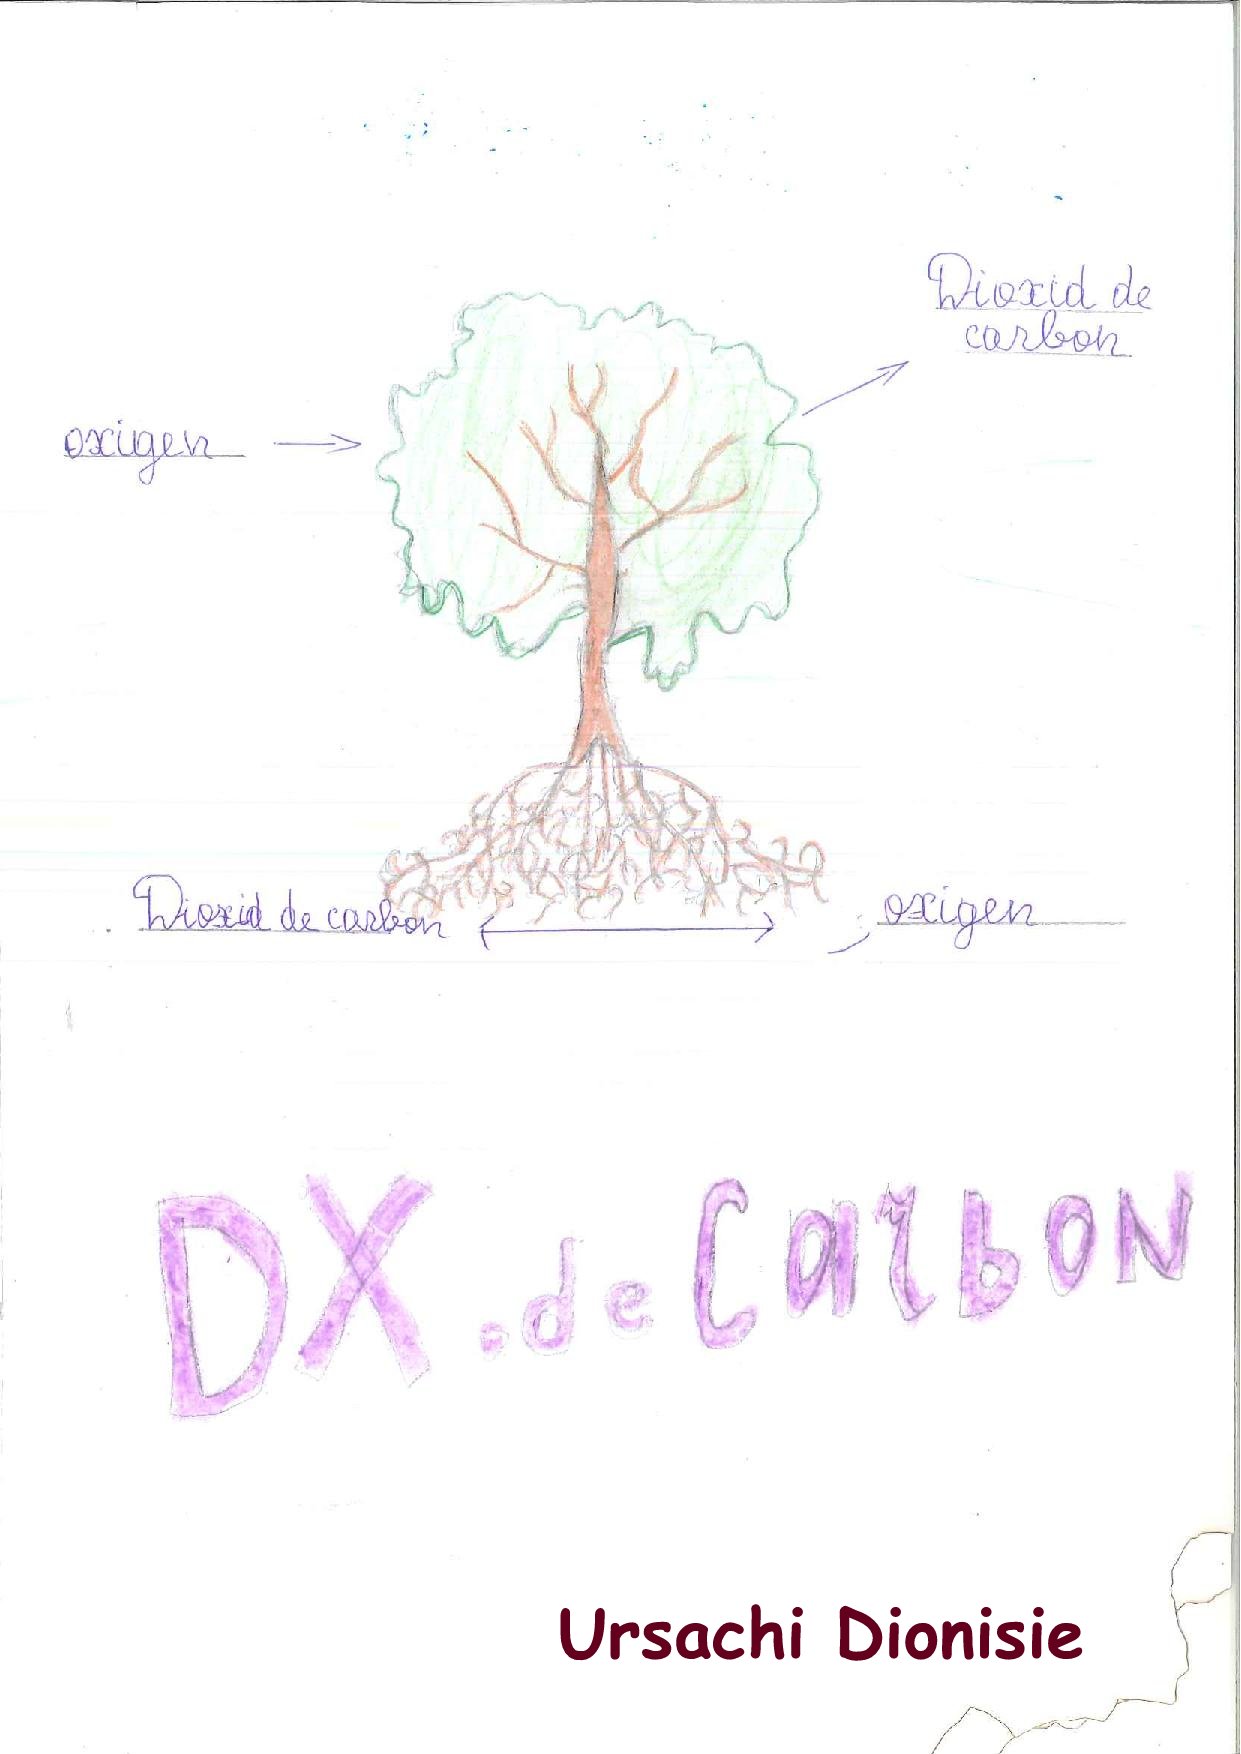 Dioxid de
carbon
oxigen
Dioxid de carbon
oxigen
DX.de CarboN
Ursachi Dionisie